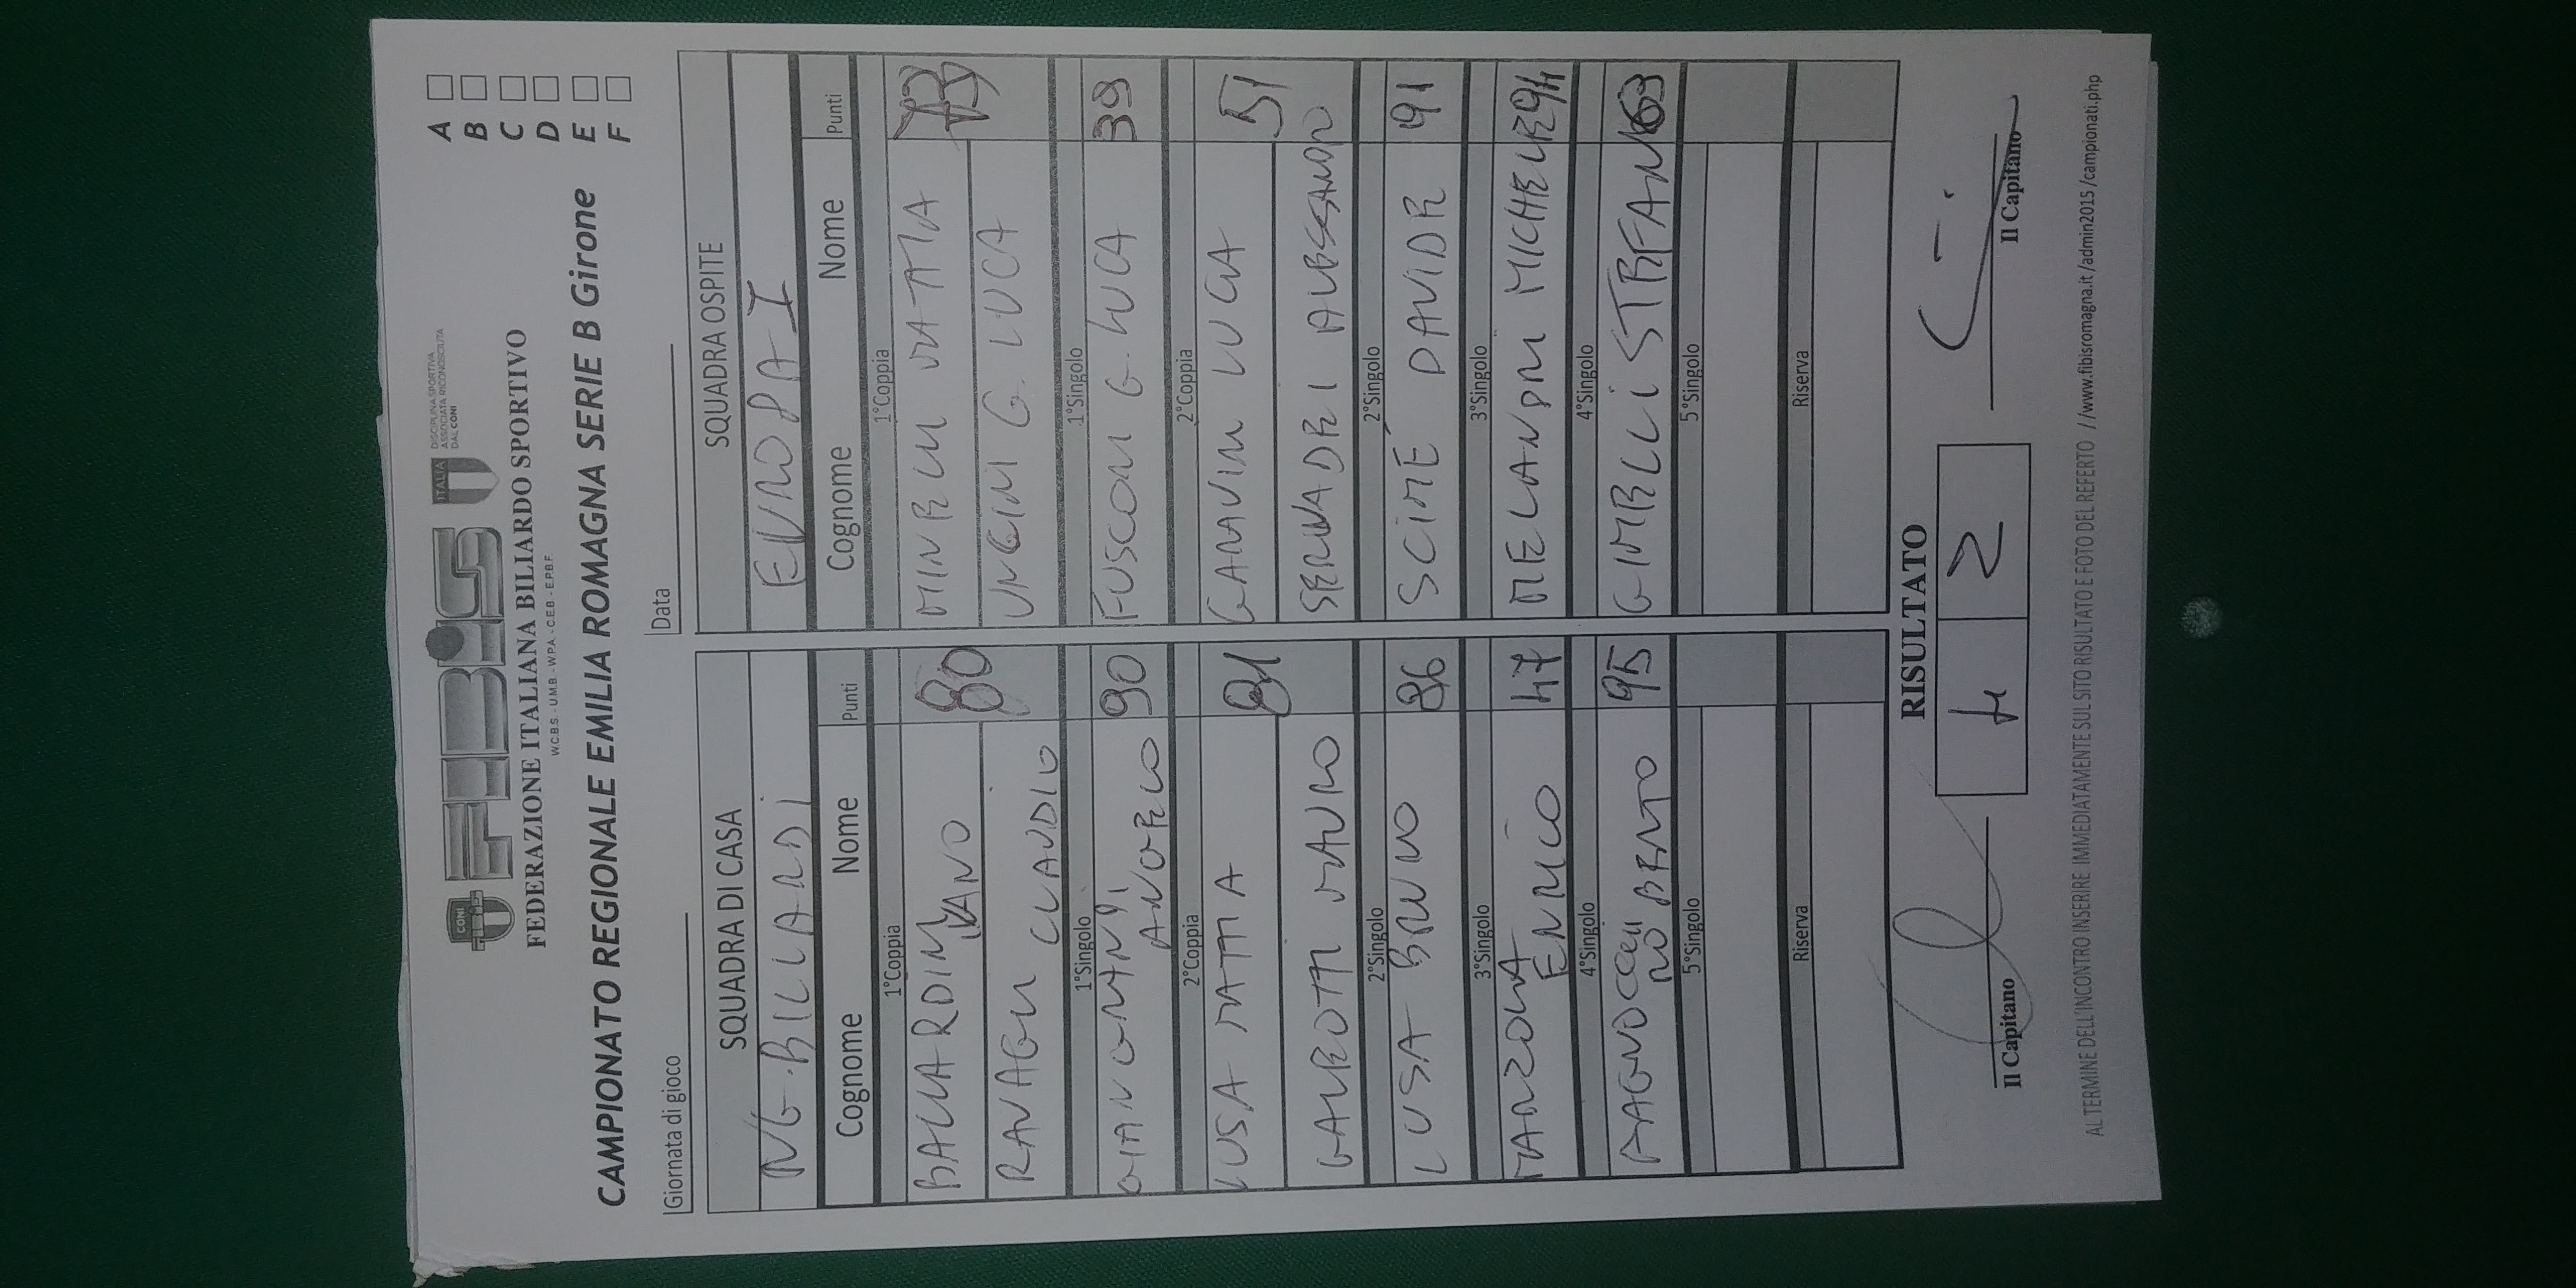 CONI
FIBIS
ITALIA
DISCIPLINA SPORTIVA
ASSOCIATA RICONOSCIUTA
DAL CONI
FEDERAZIONE ITALIANA BILIARDO SPORTIVO
W.C.B.S. - U.M.B. - W.P.A. - C.E.B. - E.P.B.F.
CAMPIONATO REGIONALE EMILIA ROMAGNA SERIE B Girone
A
B
C
D
E
F
Giornata di gioco
Data
SQUADRA DI CASA
NG. BILIARDI
Cognome Nome Punti
1°Coppia
80
RAVAGLI CLAUDIO
1°Singolo
90
2°Coppia
LUSA MATTIA 81
GALEOTTI MAURO
2°Singolo
LUSA BRUNO 86
3°Singolo
ENRICO 47
4°Singolo
95
5°Singolo
Riserva
SQUADRA OSPITE
EUROPA I
Cognome Nome Punti
1°Coppia
MINELLI MATTIA
G. LUCA
1°Singolo
FUSCONI G. LUCA 39
2°Coppia
LUCA 51
SERVADEI ALESSANDRO
2°Singolo
SCIMÉ DAVIDE 91
3°Singolo
MELANDRI MICHELE 94
4°Singolo
GIMELLI STEFANO 63
5°Singolo
Riserva
RISULTATO
4 2
Il Capitano
Il Capitano
AL TERMINE DELL'INCONTRO INSERIRE IMMEDIATAMENTE SUL SITO RISULTATO E FOTO DEL REFERTO //www.fibisromagna.it/admin2015/campionati.php